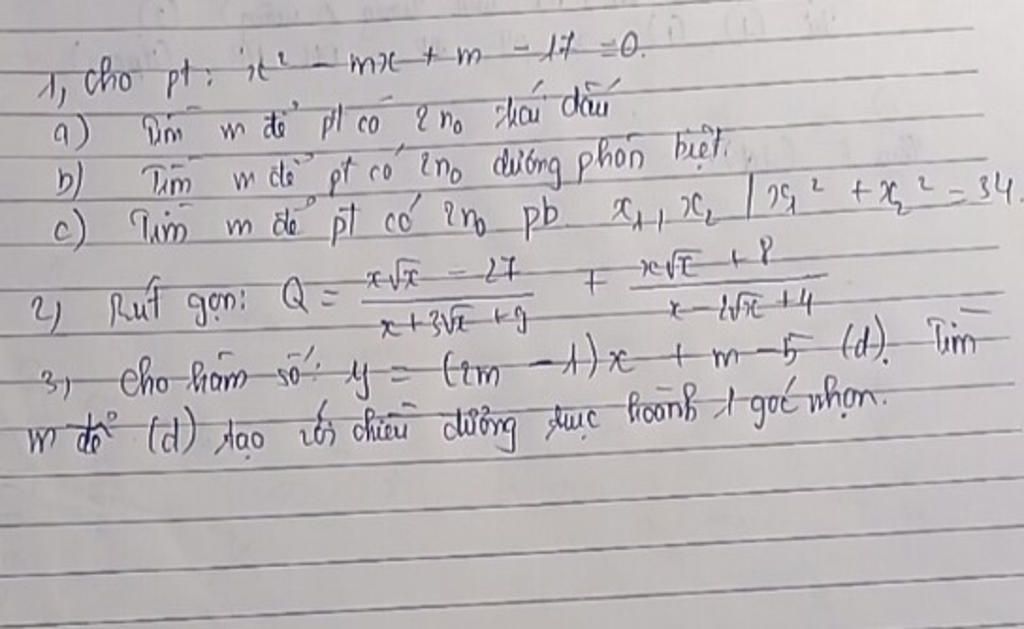 1, Cho pt: x² - mx + m - 17 = 0.
a) Tìm m để pt có 2 no trái dấu
b) Tìm m để pt có 2 no dương phân biệt.
c) Tìm m để pt có 2 no pb x₁, x₂ | x₁² + x₂² = 34.
2) Rút gọn: Q = (x√x - 27)/(x + 3√x + 9) + (x√x + 8)/(x - 2√x + 4)
3, Cho hàm số: y = (2m - 1)x + m - 5 (d). Tìm
m để (d) tạo với chiều dương trục hoành 1 góc nhọn.